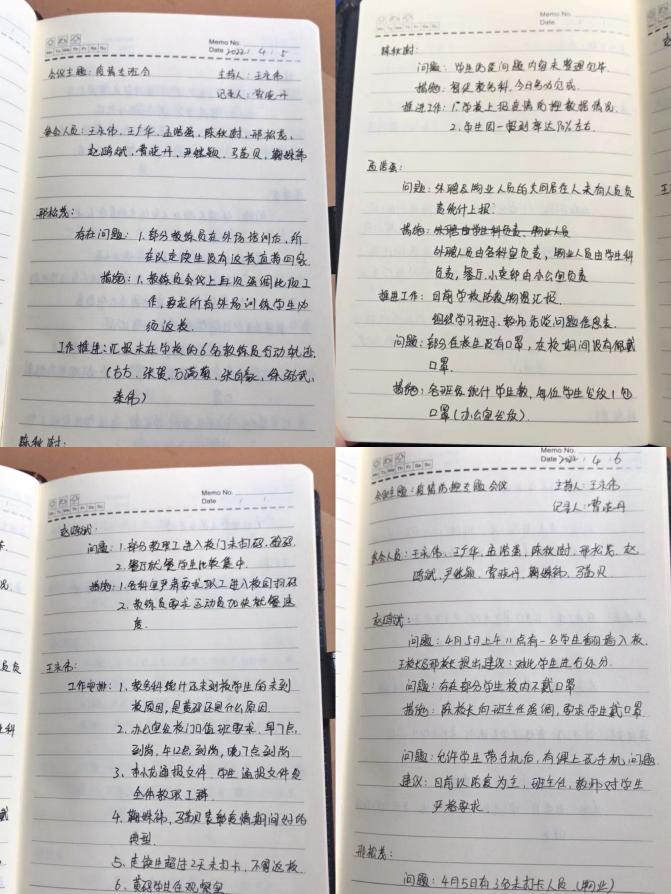 Memo No.
Date 2022.4.5
Mo Tu We Th Fr Sa Su
会议主题:疫情主班会 主持人:王永伟
记录人:曹晓丹
参会人员:王永伟、王广华、孟浩蛋、陈秋澍、邢松茂、
赵鸿斌、曹晓丹、尹继颖、马茵贝、鞠姝纬
邢松茂:
存在问题:1.部分教练员在外场培训后,所
在以走读生没有返校直接回家
措施:1.教练员会议上再次强调此项工
作,要求所有外场训练学生必
须返校.
工作推进:汇报未在学校的6名教练员行动轨迹
陈秋澍:
Memo No.
Date
陈秋澍:
问题:学生历史问题内容未整理完毕.
措施:督促教务科,今日务必完成.
推进工作:1.学校上报疫情防控数据情况.
2.学生团一报到率达70%左右.
问题:外聘及物业人员的共同居住人未有人员负
责统计上报.
措施:外聘由学生科负责,物业人员
外聘人员由各科室负责,物业人员由学生科
负责,餐厅、小卖部由办公室负责
推进工作:目前学校防疫物资汇报.
组织学习班子、教师
问题:部分在校生没有口罩,在校期间没有佩戴
口罩.
措施:各班级统计学生数,每位学生发放1包
口罩(办公室发放).
Memo No.
Date
赵鸿斌:
问题:1.部分教职工进入校门未扫码,验码
2.餐厅就餐学生比较集中.
措施:1.各科室严肃要求职工进入校园扫码
2.教练员要求运动员加快就餐速
度.
王永伟:
工作安排:1.教务科统计还未到校学生的未到
校原因,是黄码还是什么原因.
2.办公室在校门口值班要求,早7点
到岗,午12点到岗,晚7点到岗
3. 通报文件,学生通报文件发
全体教职工群.
4.鞠姝纬、马茵贝 疫情期间好的
典型.
5.走读生超过2天未打卡,不需返校
6.黄码学生在观察室
Memo No.
Date 2022.4.6
会议主题:疫情防控专题会议 主持人:王永伟
记录人:曹晓丹
参会人员:王永伟、王广华、孟浩蛋、陈秋澍、邢松茂、赵
鸿斌、尹继颖、曹晓丹、鞠姝纬、马茵贝.
赵鸿斌:
问题:4月5日上午11点有一名学生翻墙入校.
王校长邢校长提出建议:对此学生进行处分.
问题:存在部分学生校内不戴口罩
措施:陈校长向班主任强调,要求学生戴口罩
问题:允许学生带手机后,有课上玩手机问题
建议:目前以防疫为主,班主任、教师对学生
严格要求.
邢松茂:
问题:4月5日有3名未打卡人员(物业)